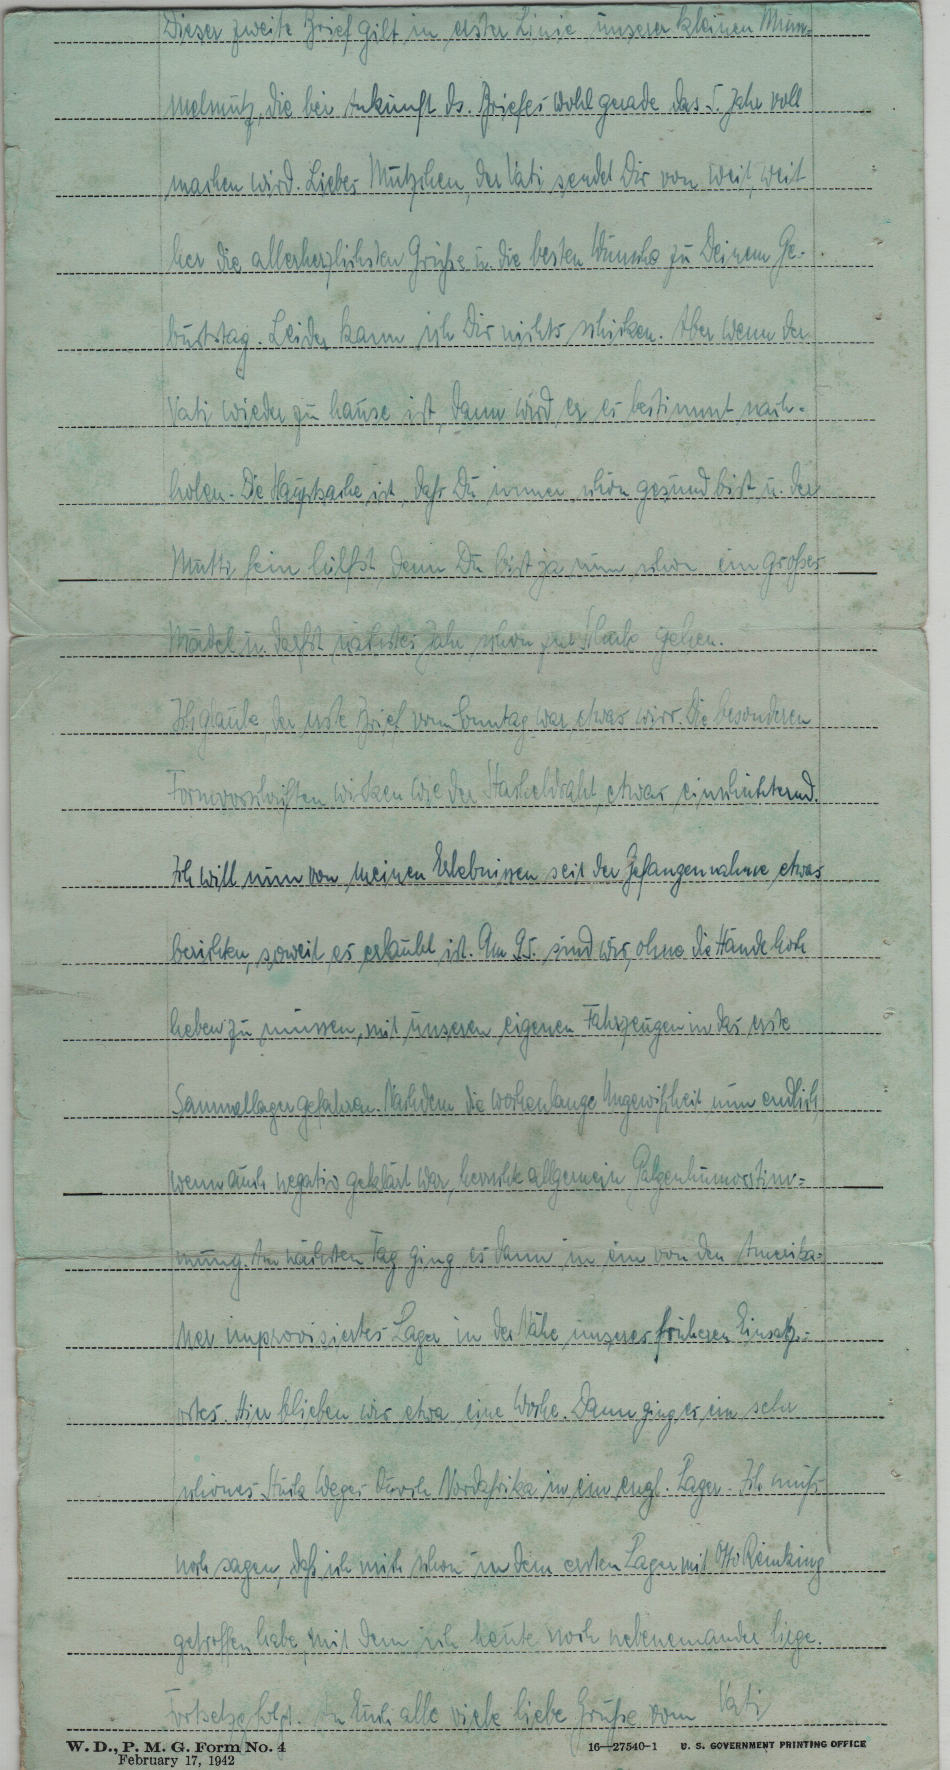 Dieser zweite Brief gilt in erster Linie unserer kleinen Mum-
melmutz, die bei Ankunft ds. Briefes wohl gerade das 5. Jahr voll
machen wird. Liebes Mutzchen, der Vati sendet Dir von weit, weit
her die allerherzlichsten Grüße u. die besten Wünsche zu Deinem Ge-
burtstag. Leider kann ich Dir nichts schicken. Aber wenn der
Vati wieder zu hause ist, dann wird er es bestimmt nach-
holen. Die Hauptsache ist, daß Du immer schön gesund bist u. der
Mutti fein hilfst, denn Du bist ja nun schon ein großes
Mädel u. darfst nächstes Jahr schon zur Schule gehen.
Ich glaube der erste Brief vom Sonntag war etwas wirr. Die besonderen
Formvorschriften wirken wie der Stacheldraht, etwas einschüchternd.
Ich will nun von meinen Erlebnissen seit der Gefangennahme etwas
berichten, soweit es erlaubt ist. Am 9.5. sind wir, ohne die Hände hoch
heben zu müssen, mit unseren eigenen Fahrzeugen in das erste
Sammellager gefahren. Nachdem die wochenlange Ungewißheit nun endlich
wenn auch negativ geklärt war, herrschte allgemein Galgenhumorstim-
mung. Am nächsten Tag ging es dann in ein von den Amerika-
ner improvisiertes Lager in der Nähe unseres früheren Einsatz-
ortes. Hier blieben wir etwa eine Woche. Dann ging es ein sehr
schönes Stück Weges durch Nordafrika in ein engl. Lager. Ich muß
noch sagen, daß ich mich schon in dem ersten Lager mit Otto Reinking
getroffen habe, mit dem ich heute noch nebeneinander liege.
Fortsetzg folgt. An Euch alle viele liebe Grüße vom Vati
W. D., P. M. G. Form No. 4
February 17, 1942
16—27540-1 U. S. GOVERNMENT PRINTING OFFICE